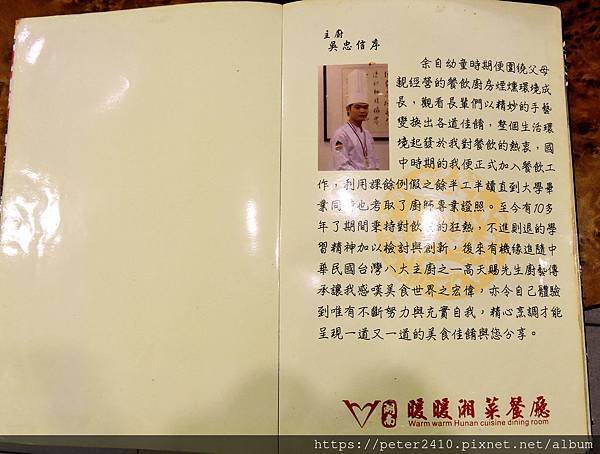 主廚
吳忠信序
余自幼童時期便圍繞父母
親經營的餐飲廚房煙燻環境成
長，觀看長輩們以精妙的手藝
變換出各道佳餚，整個生活環
境起發於我對餐飲的熱衷，國
中時期的我便正式加入餐飲工
作，利用課餘例假之餘半工半讀直到大學畢
業同時也考取了廚師專業證照。至今有10多
年了期間秉持對飲食的狂熱，不進則退的學
習精神加以檢討與創新，後來有機緣進隨中
華民國台灣八大主廚之一高天賜先生廚藝傳
承讓我感嘆美食世界之宏偉，亦令自己體驗
到唯有不斷努力與充實自我，精心烹調才能
呈現一道又一道的美食佳餚與您分享。
湖南 暖暖湘菜餐廳
Warm warm Hunan cuisine dining room
https://peter2410.pixnet.net/album